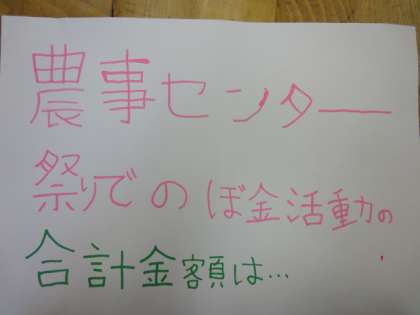 農事センター
祭りでのぼ金活動の
合計金額は…